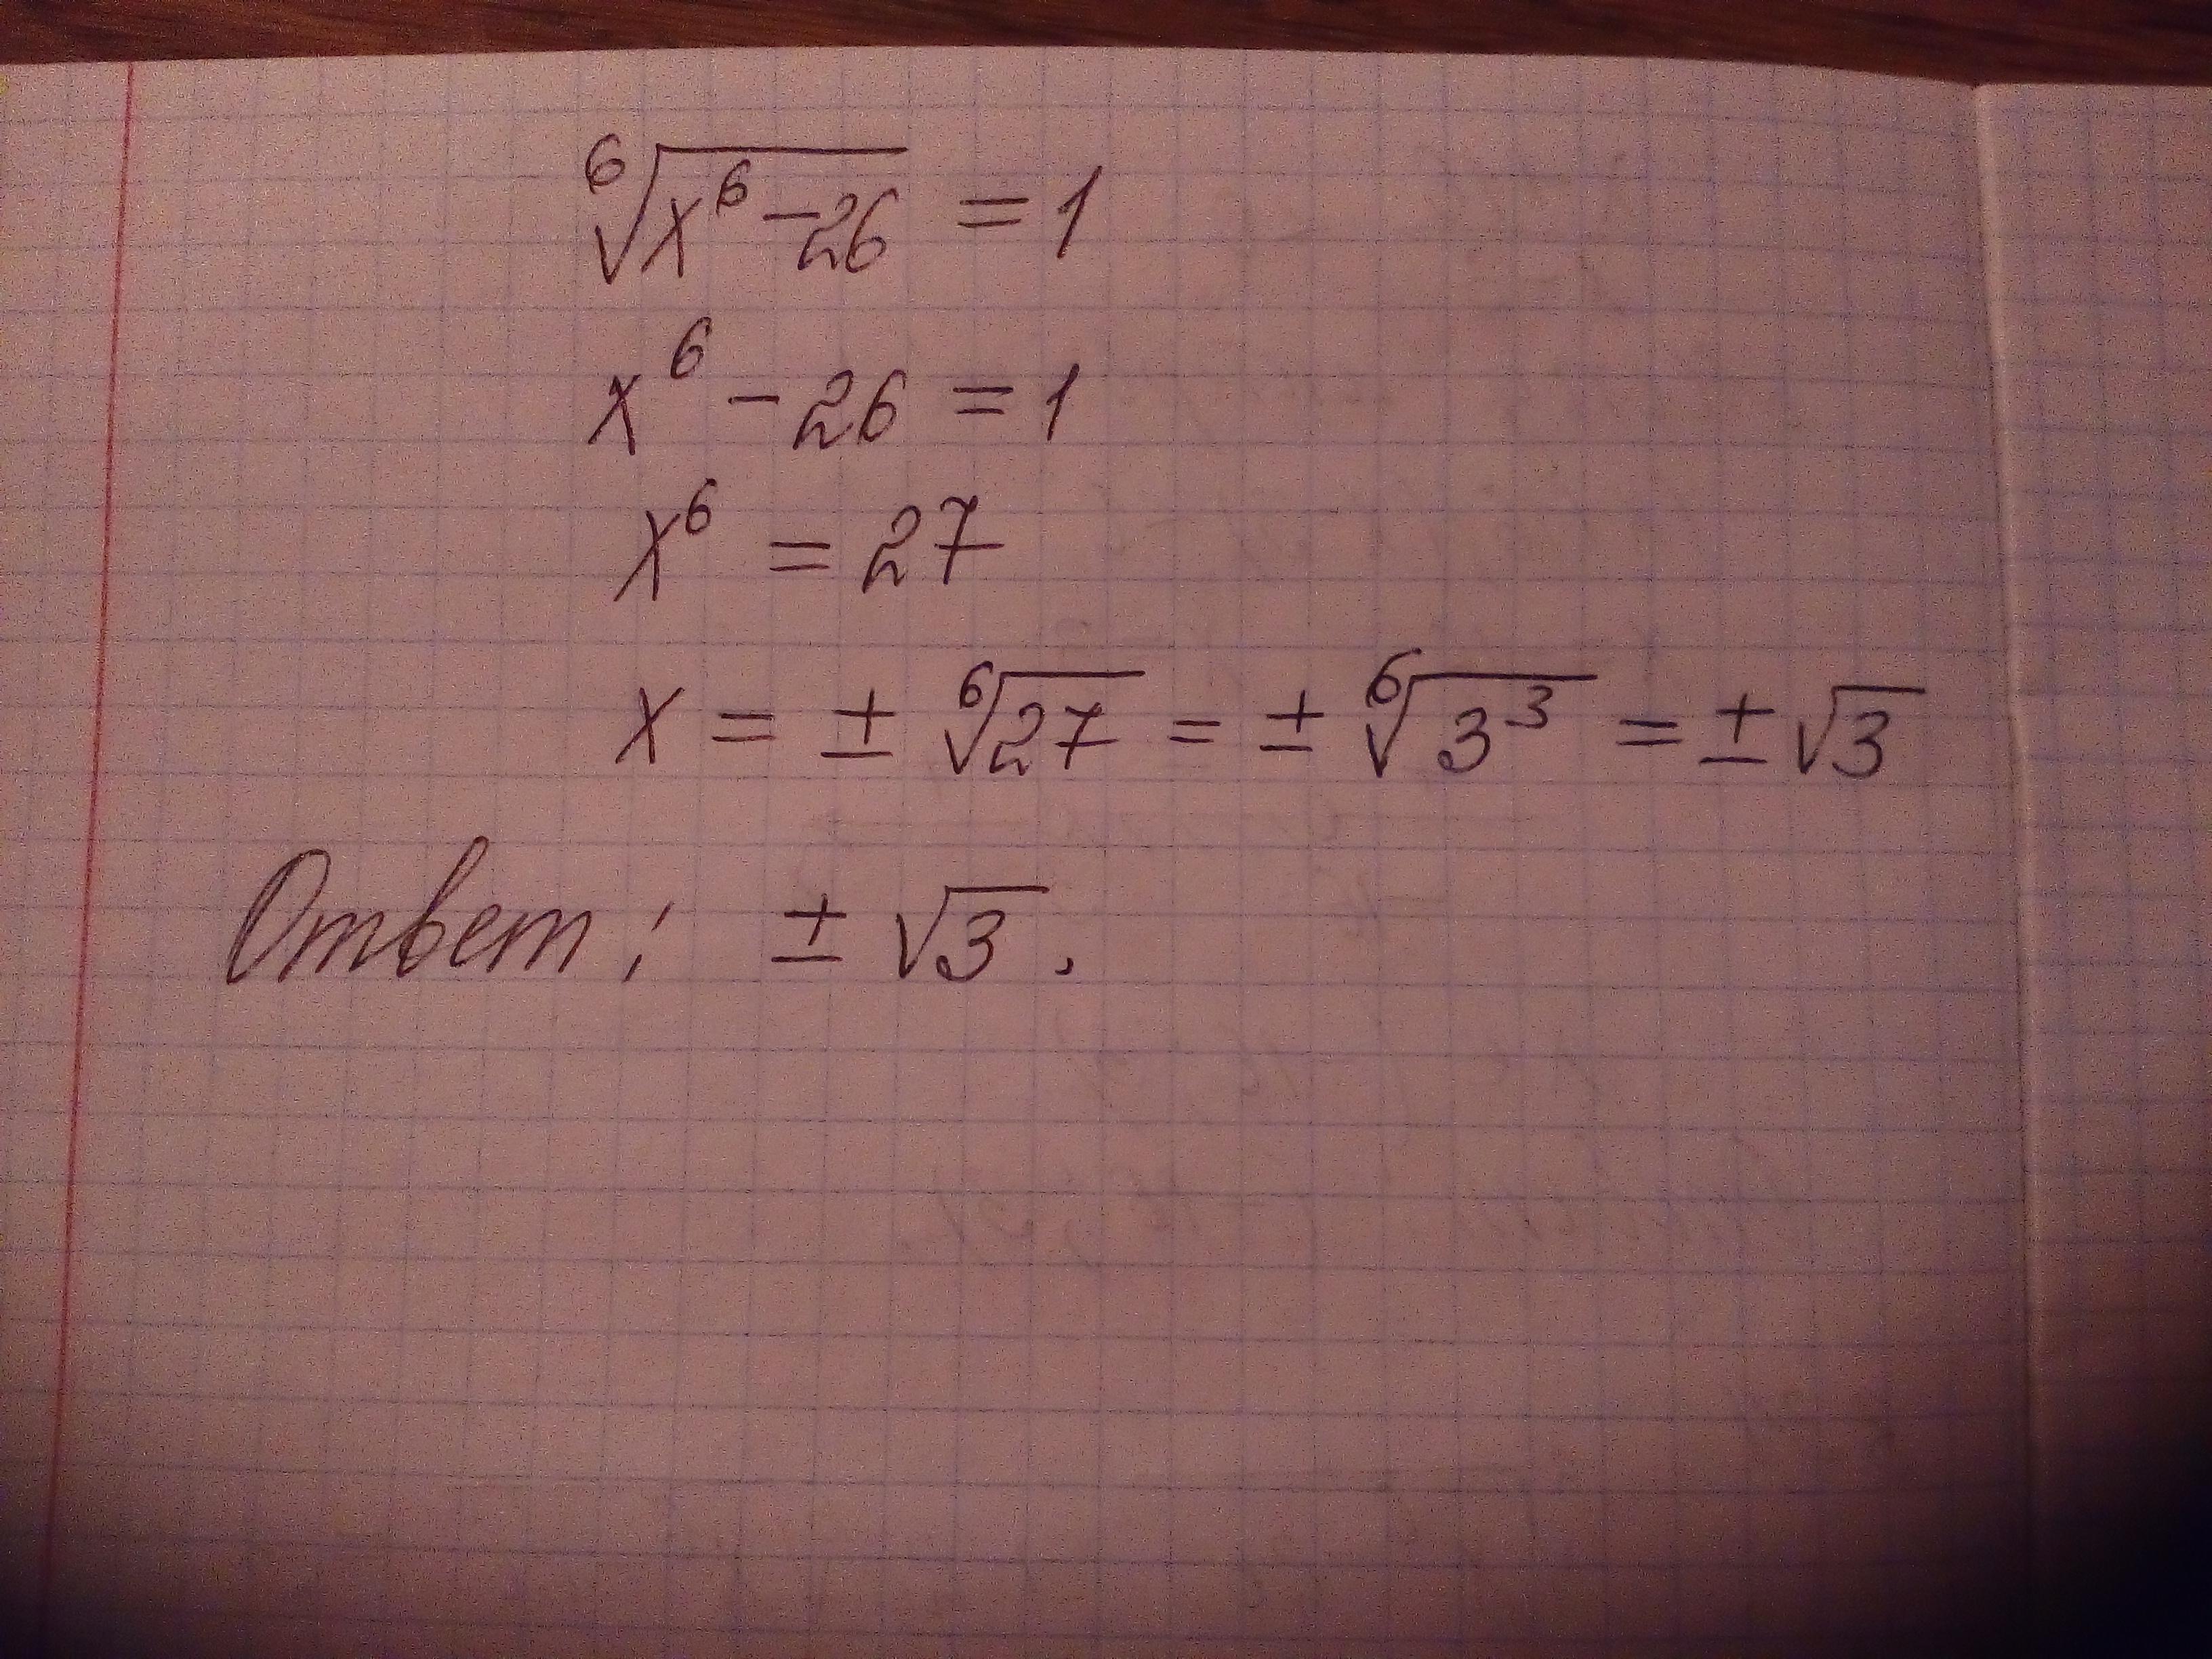 ⁶√(x⁶ − 26) = 1
x⁶ − 26 = 1
x⁶ = 27
x = ± ⁶√27 = ± ⁶√3³ = ± √3
Ответ: ± √3.